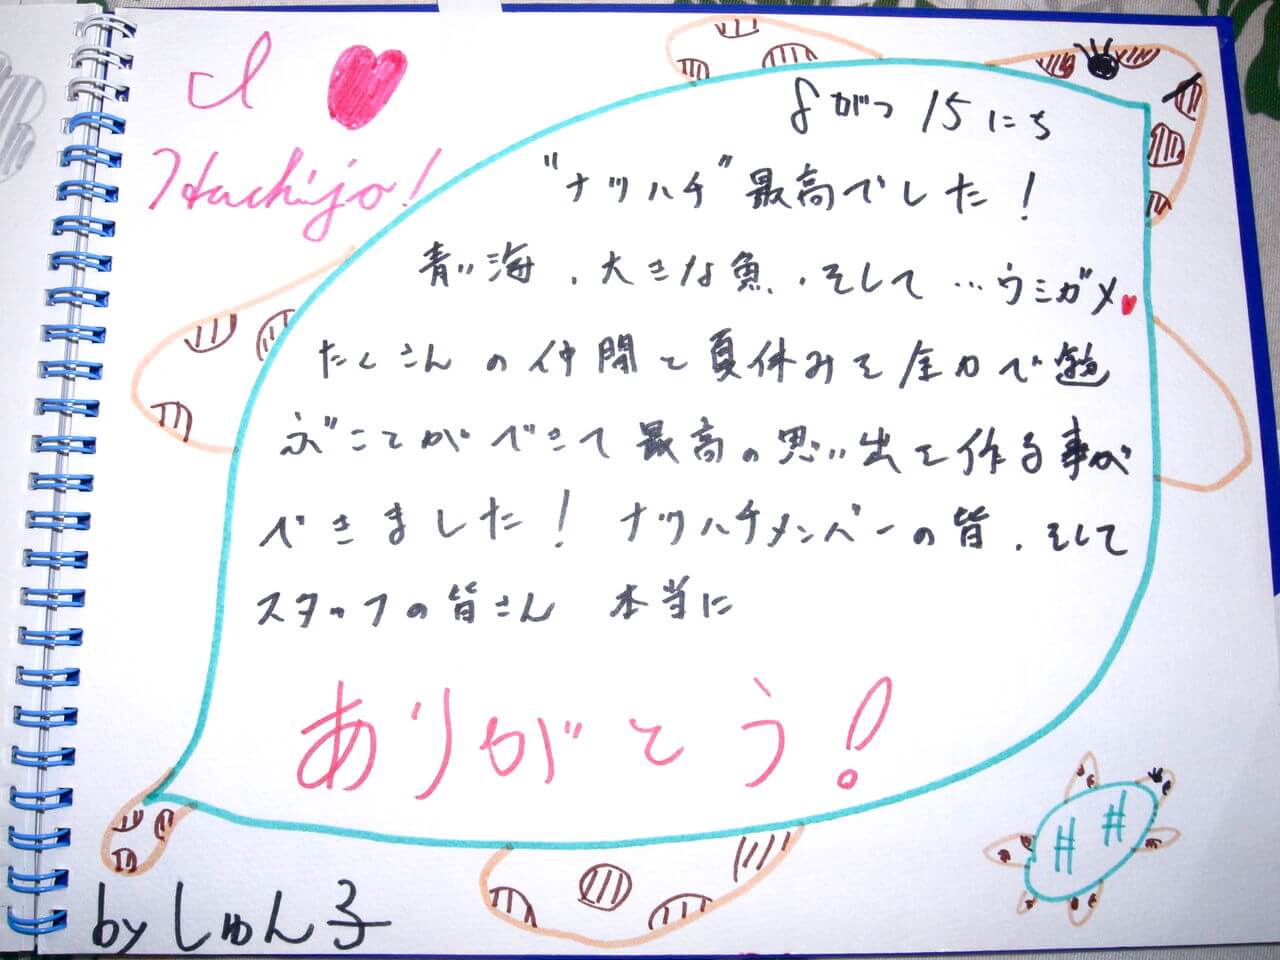 I ♥
Hachijo!
8がつ 15にち
"ナツハチ" 最高でした!
青い海、大きな魚、そして…ウミガメ♥
たくさんの仲間と夏休みを全力で遊
ぶことができて最高の思い出を作る事が
できました! ナツハチメンバーの皆、そして
スタッフの皆さん 本当に
ありがとう!
by しゅん子